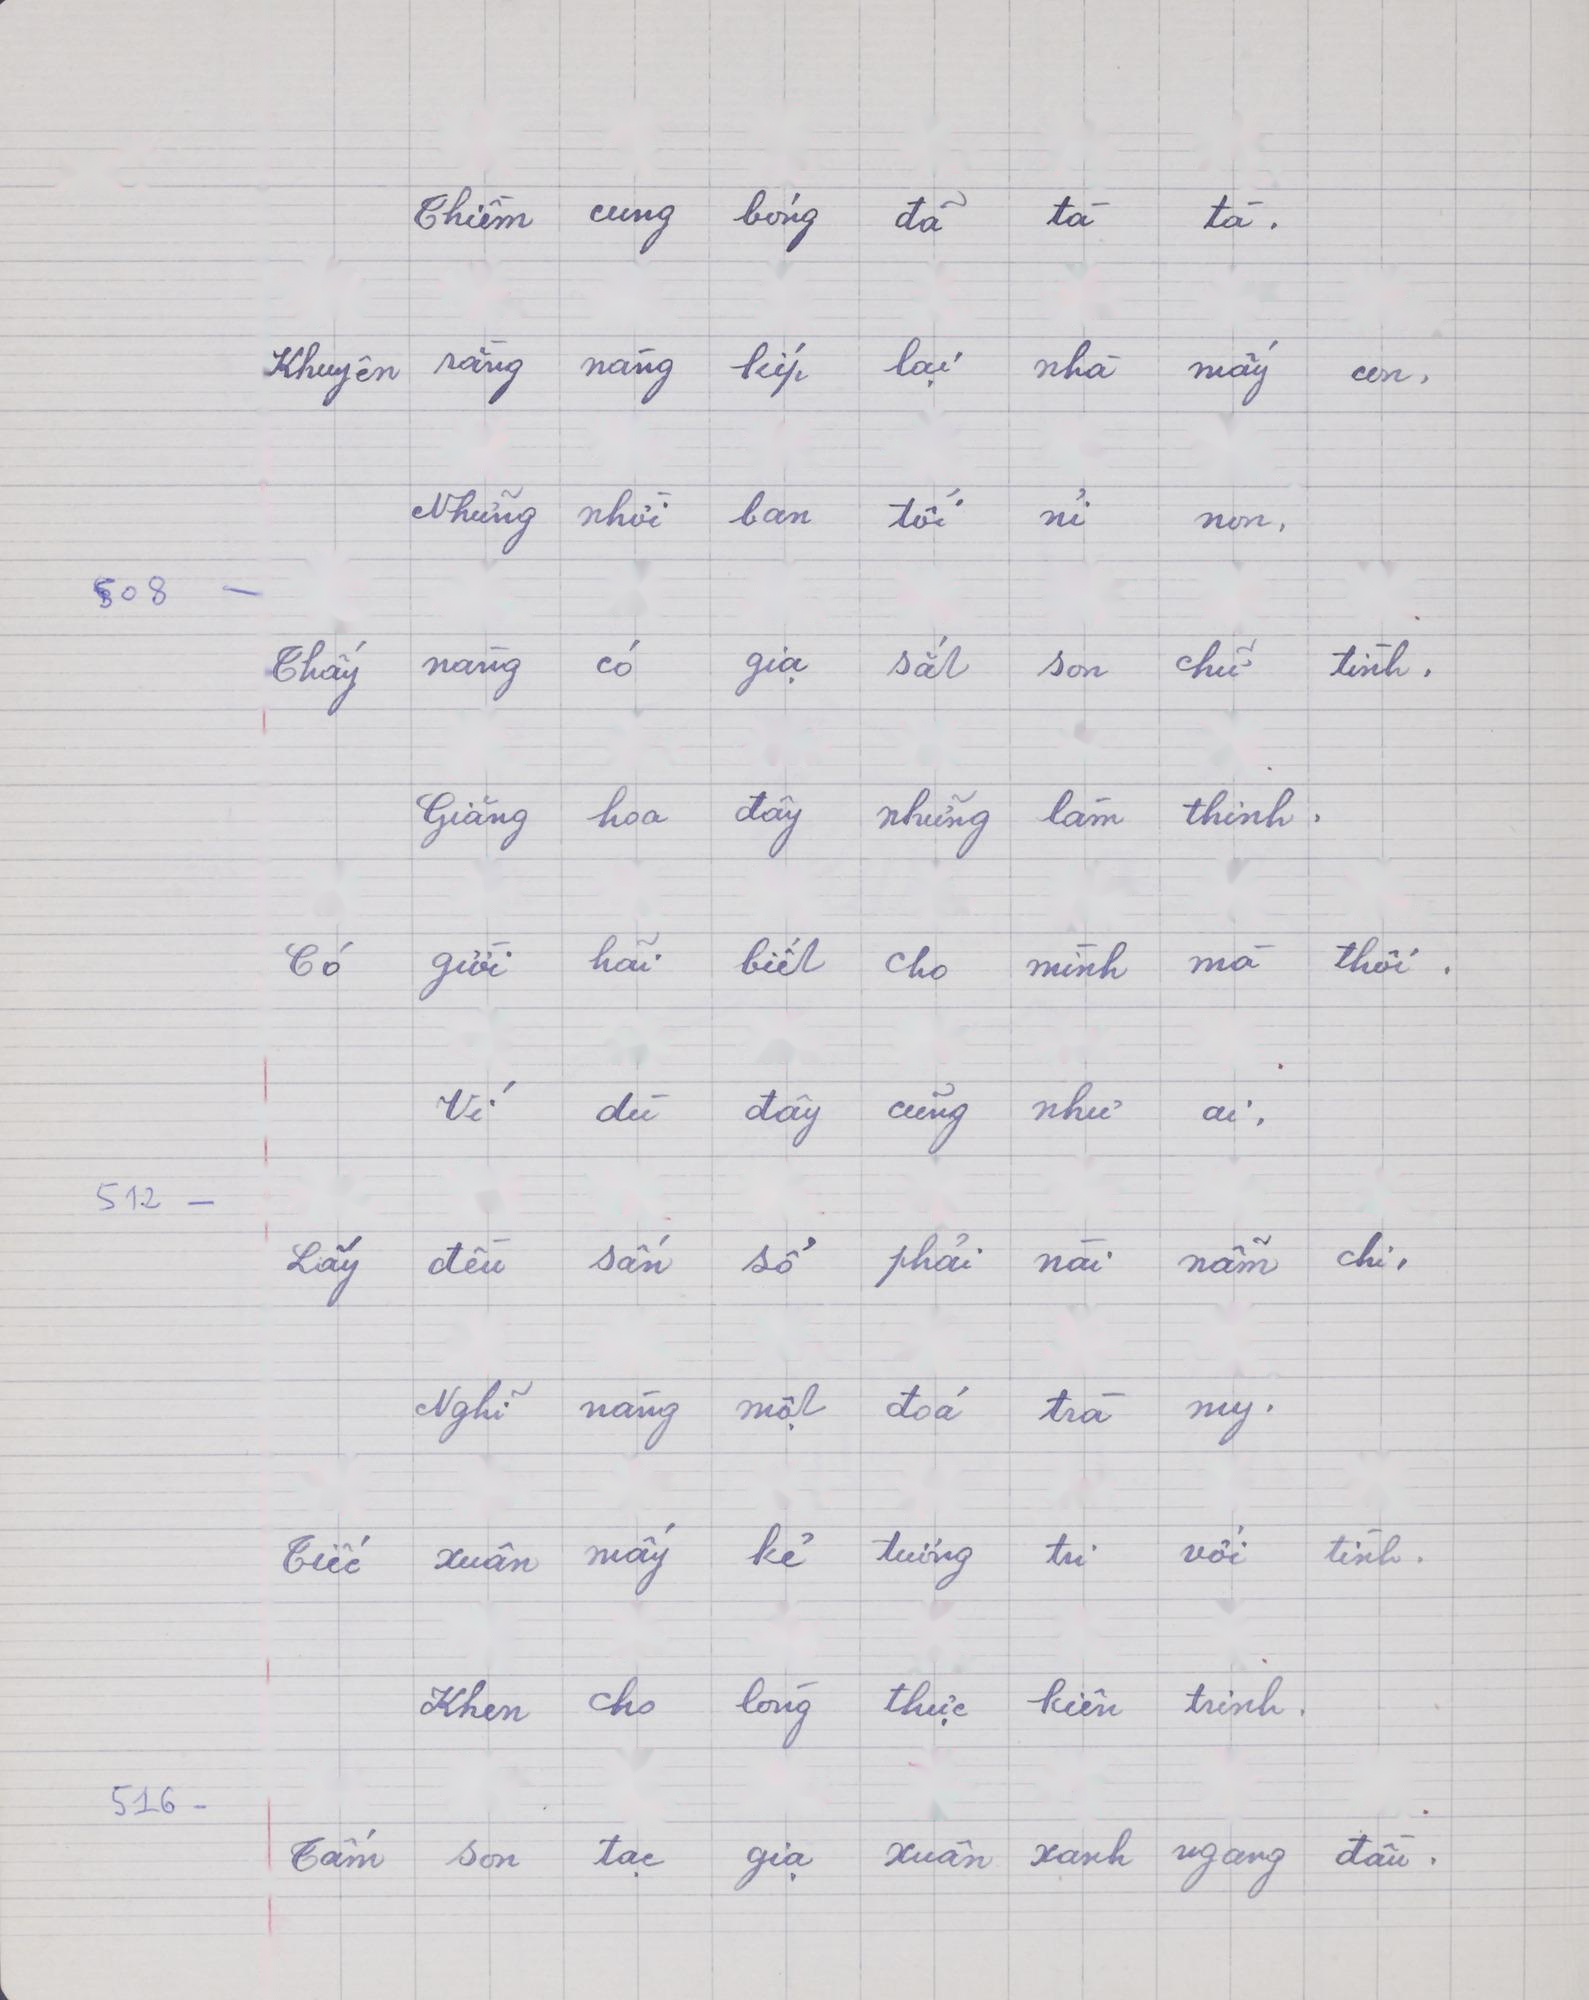 Thiềm cung bóng đã tà tà.
Khuyên rằng nàng kíp lại nhà mấy con,
Những nhời ban tối nỉ non,
508 —
Thấy nàng có giạ sắt son chữ tình.
Giăng hoa đây những làm thinh.
Có giời hãi biết cho mình mà thôi.
Ví dù đây cũng như ai,
512 —
Lấy đều sấn sổ phải nài nẫm chi.
Nghĩ nàng một đoá trà my.
Tiếc xuân mấy kẻ tướng tri với tình.
Khen cho lòng thực kiên trinh.
516 -
Tấm son tạc giạ xuân xanh ngang đầu.